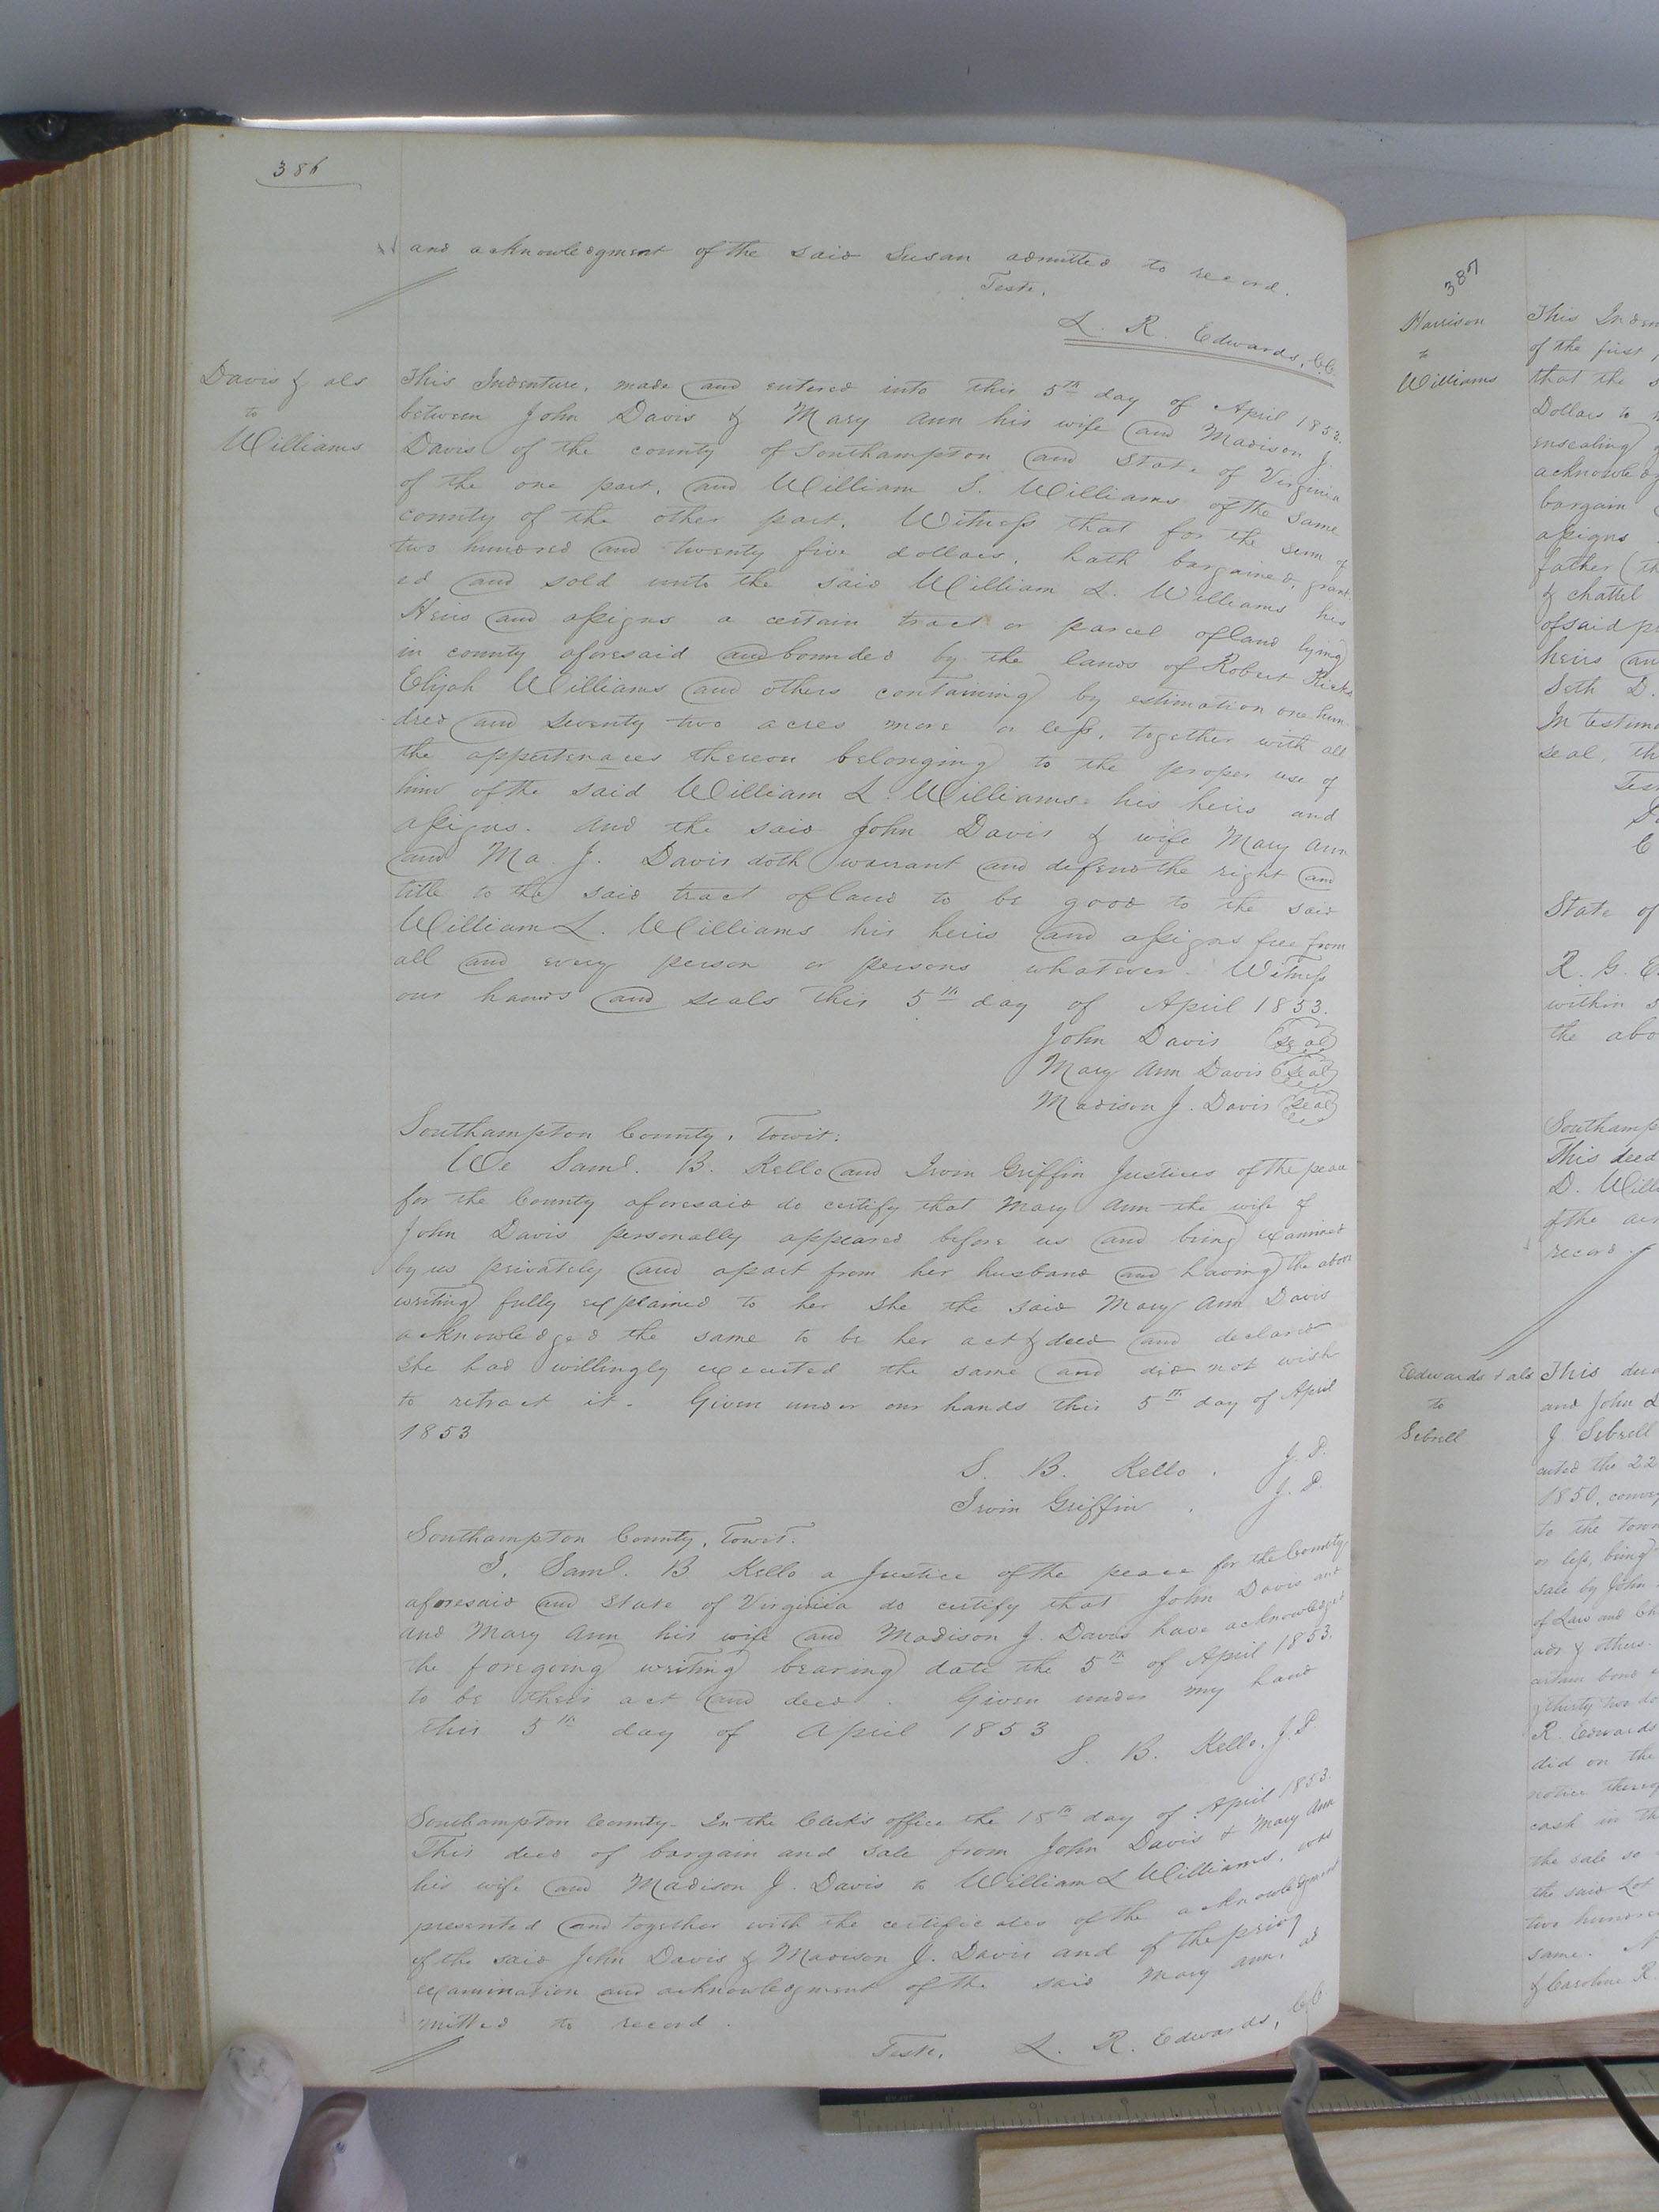 386
and acknowledgment of the said Susan admitted to record.
Teste.
L. R. Edwards, C.C.
Davis & als
to
Williams
This Indenture, made and entered into this 5th day of April 1853.
between John Davis & Mary Ann his wife and Madison J.
Davis of the county of Southampton and State of Virginia
of the one part, and William S. Williams of the same
county of the other part. Witness that for the sum of
two hundred and twenty five dollars, hath bargained, grant-
ed and sold unto the said William L. Williams his
Heirs and assigns a certain tract or parcel of land lying
in county aforesaid and bounded by the lands of Robert Ricks
Elijah Williams and others containing by estimation one hun-
dred and seventy two acres more or less, together with all
the appertenaces thereon belonging to the proper use of
him of the said William L. Williams his heirs and
assigns. And the said John Davis & wife Mary Ann
and Ma. J. Davis doth warrant and defend the right and
title to the said tract of land to be good to the said
William L. Williams his heirs and assigns free from
all and every person or persons whatever - Witness
our hands and seals this 5th day of April 1853.
John Davis seal
Mary Ann Davis seal
Madison J. Davis seal
Southampton County, Towit:
We Saml. B. Kello and Irvin Griffin Justices of the peace
for the County aforesaid do certify that Mary Ann the wife of
John Davis personally appeared before us and being examined
by us privately and apart from her husband and having the above
writing fully explained to her she the said Mary Ann Davis
acknowledged the same to be her act & deed and declared
she had willingly executed the same and did not wish
to retract it. Given under our hands this 5th day of April
1853
S. B. Kello. J.P.
Irvin Griffin. J.P.
Southampton County, Towit.
I, Saml. B Kello a Justice of the peace for the County
aforesaid and State of Virginia do certify that John Davis and
and Mary Ann his wife and Madison J. Davis have acknowledged
the foregoing writing bearing date the 5th of April 1853.
to be their act and deed. Given under my hand
this 5th day of April 1853
S. B. Kello, J.P.
Southampton County - In the Clerk's office the 18th day of April 1853.
This deed of bargain and sale from John Davis & Mary Ann
his wife and Madison J. Davis to William L Williams, was
presented and together with the certificates of the acknowledgment
of the said John Davis & Madison J. Davis and of the privy
examination and acknowledgment of the said Mary Ann, ad
mitted to record.
Teste, L. R. Edwards, C.C.
387
Harrison
to
Williams
This Inden
of the first
that the s
Dollars to
ensealing
acknowledg
bargain
assigns
father (th
& chattel
of said pr
heirs and
Seth D.
In testimo
seal, th
Tes
State of
R. G. E
within
the abo
Southamp
This deed
D. Willi
of the
record.
Edwards & als
to
Sebrell
This deed
and John
J Sebrell
cuted the 22
1850, convey
to the town
or less, being
sale by John
of Law and Ch
& others.
certain bond
thirty two do
R. Edwards
did on the
notice thereof
cash in th
the sale so
the said Lot
two hundred
same.
& Caroline R.